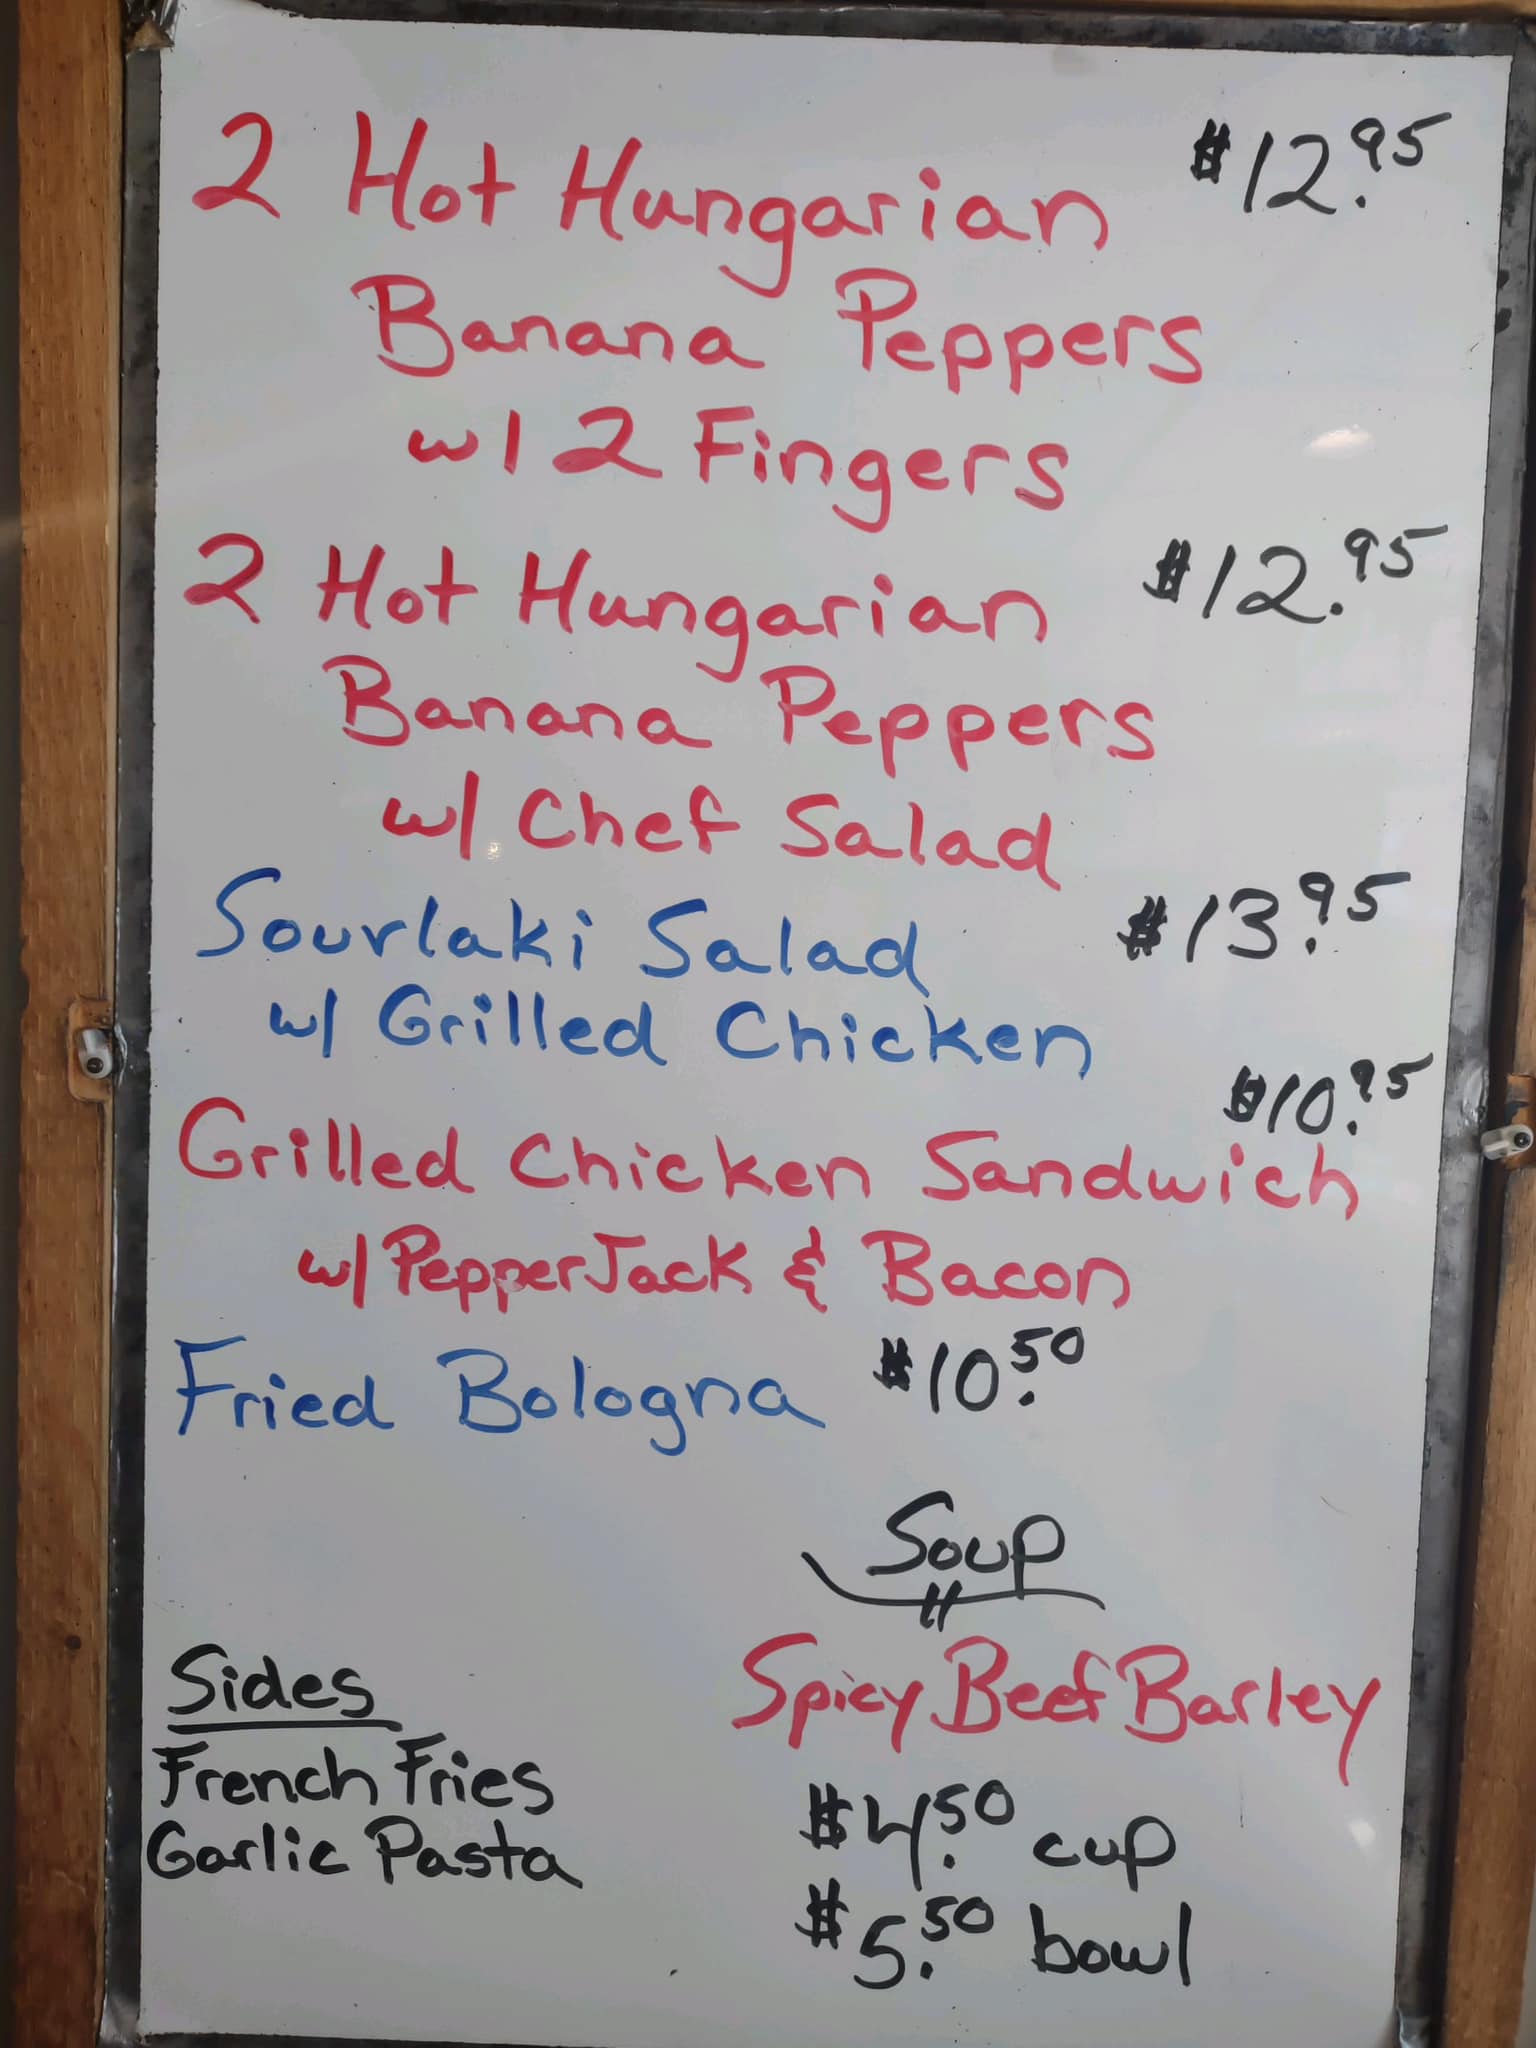 2 Hot Hungarian $12.95
Banana Peppers
w/ 2 Fingers
2 Hot Hungarian $12.95
Banana Peppers
w/ Chef Salad
Sourlaki Salad $13.95
w/ Grilled Chicken
$10.95
Grilled Chicken Sandwich
w/ PepperJack & Bacon
Fried Bologna $10.50
Soup
Spicy Beef Barley
$4.50 cup
$5.50 bowl
Sides
French Fries
Garlic Pasta